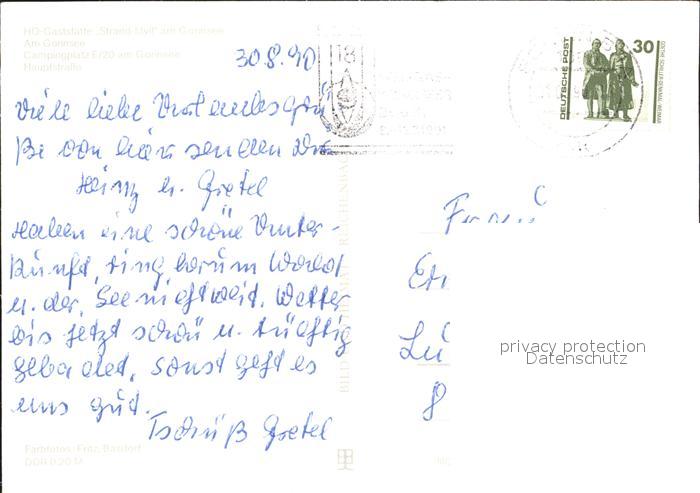 HO-Gaststätte „Strand-Idyll" am Gorinsee
Am Gorinsee
Campingplatz E/20 am Gorinsee
Hauptstraße
30.8.90
Viele liebe Urlaubsgrü-
ße von hier senden Dir
Heinz u. Gretel
Haben eine schöne Unter-
kunft, ringherum Wald
u. der See nicht weit. Wetter
bis jetzt schön u. tüchtig
gebadet, sonst geht es
uns gut.
Tschüß Gretel
Farbfotos: Fritz,
DDR 0,20 M
BILD UND HEIMAT REICHENBACH
18
DEUTSCHE POST
30
GOETHE-SCHILLER-DENKMAL WEIMAR
privacy protection
Datenschutz